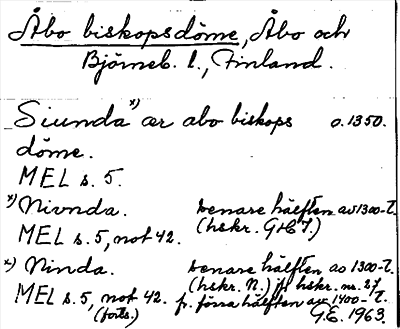 Åbo biskopsdöme, Åbo och
Björneb. l., Finland.
Siunda x) ær abo biskops o. 1350.
döme.
MEL s. 5.
x) Nivnda. senare hälften av 1300-t.
MEL s. 5, not 42. (hskr. G&I?).
x) Ninda. senare hälften av 1300-t.
(hskr. N.) jfr hskr. nr. 27
MEL s. 5, not 42. fr. förra hälften av 1400-t.
(forts.) G.E. 1963.